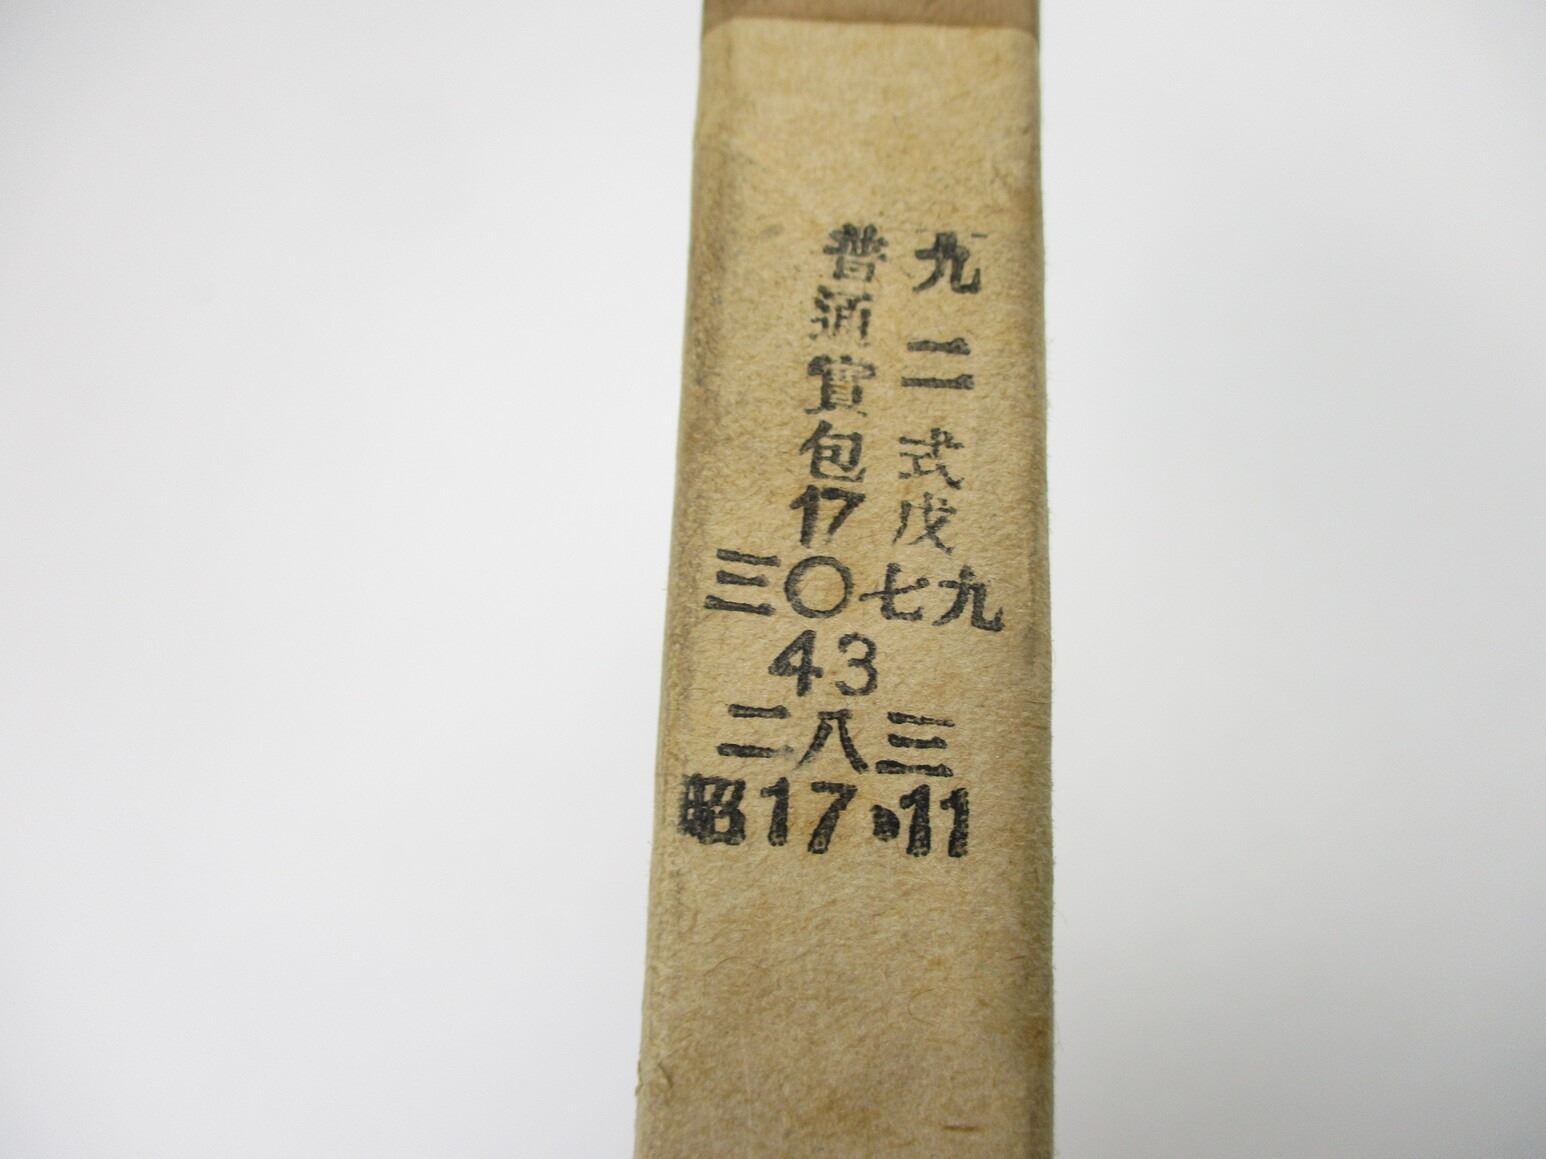 九二式戊
普通實包17
三〇七九
43
二八三
昭17.11